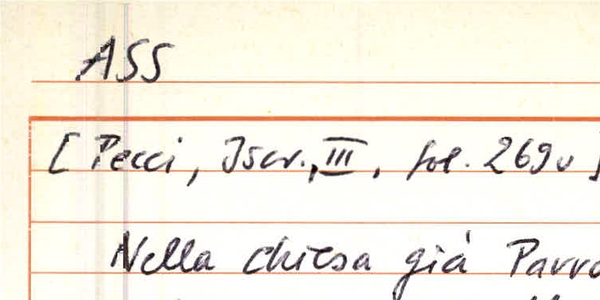 ASS
[Pecci, Iscr., III, fol. 269v]
Nella chiesa già Parro